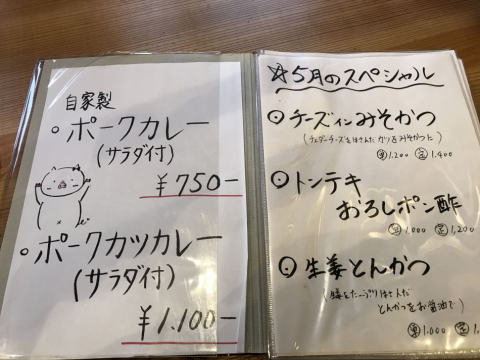 自家製
・ポークカレー
(サラダ付)
¥750-
・ポークカツカレー
(サラダ付)
¥1.100-
☆5月のスペシャル
⊙チーズインみそかつ
(チェダーチーズをはさんだカツをみそかつに)
1.200 定 1.400
⊙トンテキ
おろしポン酢
1.000 定 1,200
⊙生姜とんかつ
はさんだ
とんかつをお醤油で)
1.000 定